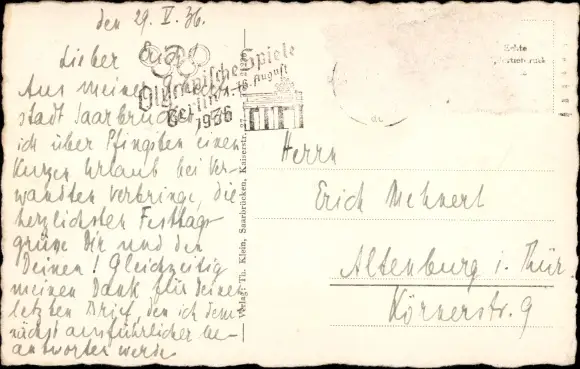 den 29. V. 36.
Lieber Erich!
Aus meiner
stadt Saarbrücken,
ich über Pfingsten einen
kurzen Urlaub bei Ver-
wandten verbringe, die
herzlichsten Festtags-
grüße Dir und den
Deinen! Gleichzeitig
meinen Dank für Deinen
letzten Brief, den ich dem-
nächst ausführlicher be-
antworten werde.
Olympische Spiele
Berlin 1.-16. August
1936
Verlag: Th. Klein, Saarbrücken, Kaiserstr. 27
Echte
Herrn
Erich Mehnert
Altenburg i. Thür.
Körnerstr. 9